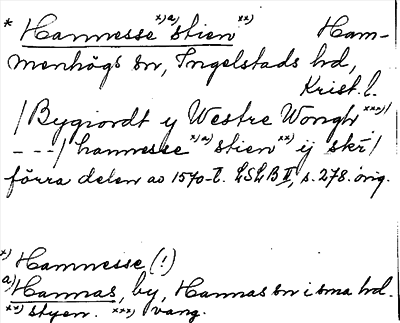 * Hannesse x) a) stien xx) Ham-
menhögs sn, Ingelstads hd,
Krist. l.
/Bygiordt y Westre Wongh xxx)/
---/hannesse x) a) stien xx) ij skr/
förra delen av 1570-t. LSLB II, s. 278. orig.
x) Hamnesse (!)
a) Hannas, by, Hannas sn i sma hd.
xx) styen. xxx) vang.